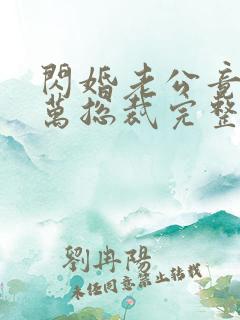 閃婚老公竟
萬總裁完整
劉冉陽
未經同意禁止轉載